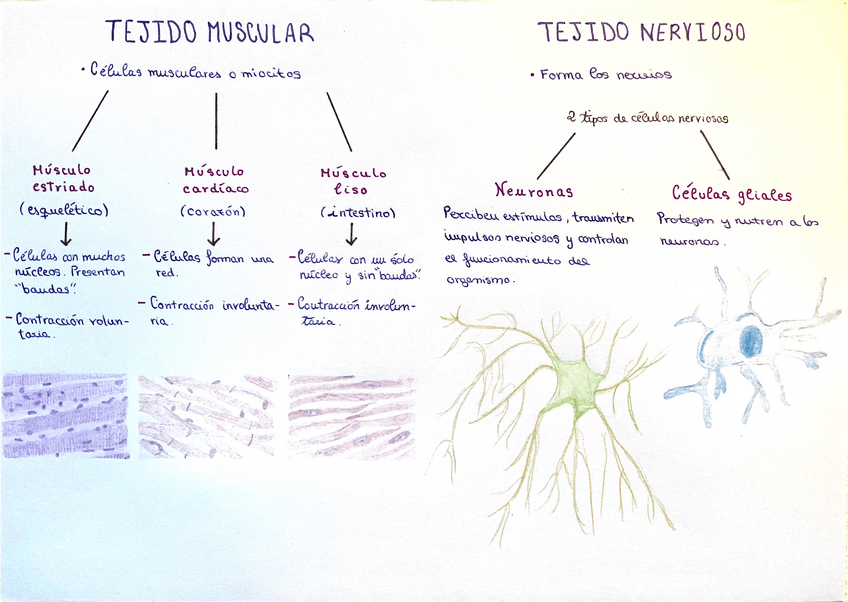 TEJIDO MUSCULAR
• Células musculares o miocitos
Músculo
estriado
(esquelético)
- Células con muchos
núcleos. Presentan
"bandas".
- Contracción volun-
taria.
Músculo
cardíaco
(corazón)
- Células forman una
red.
- Contracción involunta-
ria.
Músculo
liso
(intestino)
- Células con un solo
núcleo y sin "bandas".
- Contracción involun-
taria.
TEJIDO NERVIOSO
• Forma los nervios
2 tipos de células nerviosas
Neuronas
Perciben estímulos, transmiten
impulsos nerviosos y controlan
el funcionamiento del
organismo.
Células gliales
Protegen y nutren a las
neuronas.